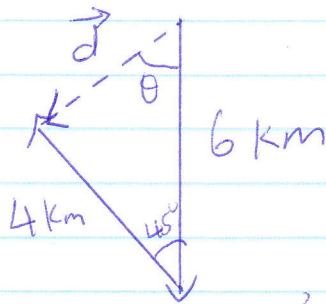 d
θ
6 km
4 km
45°